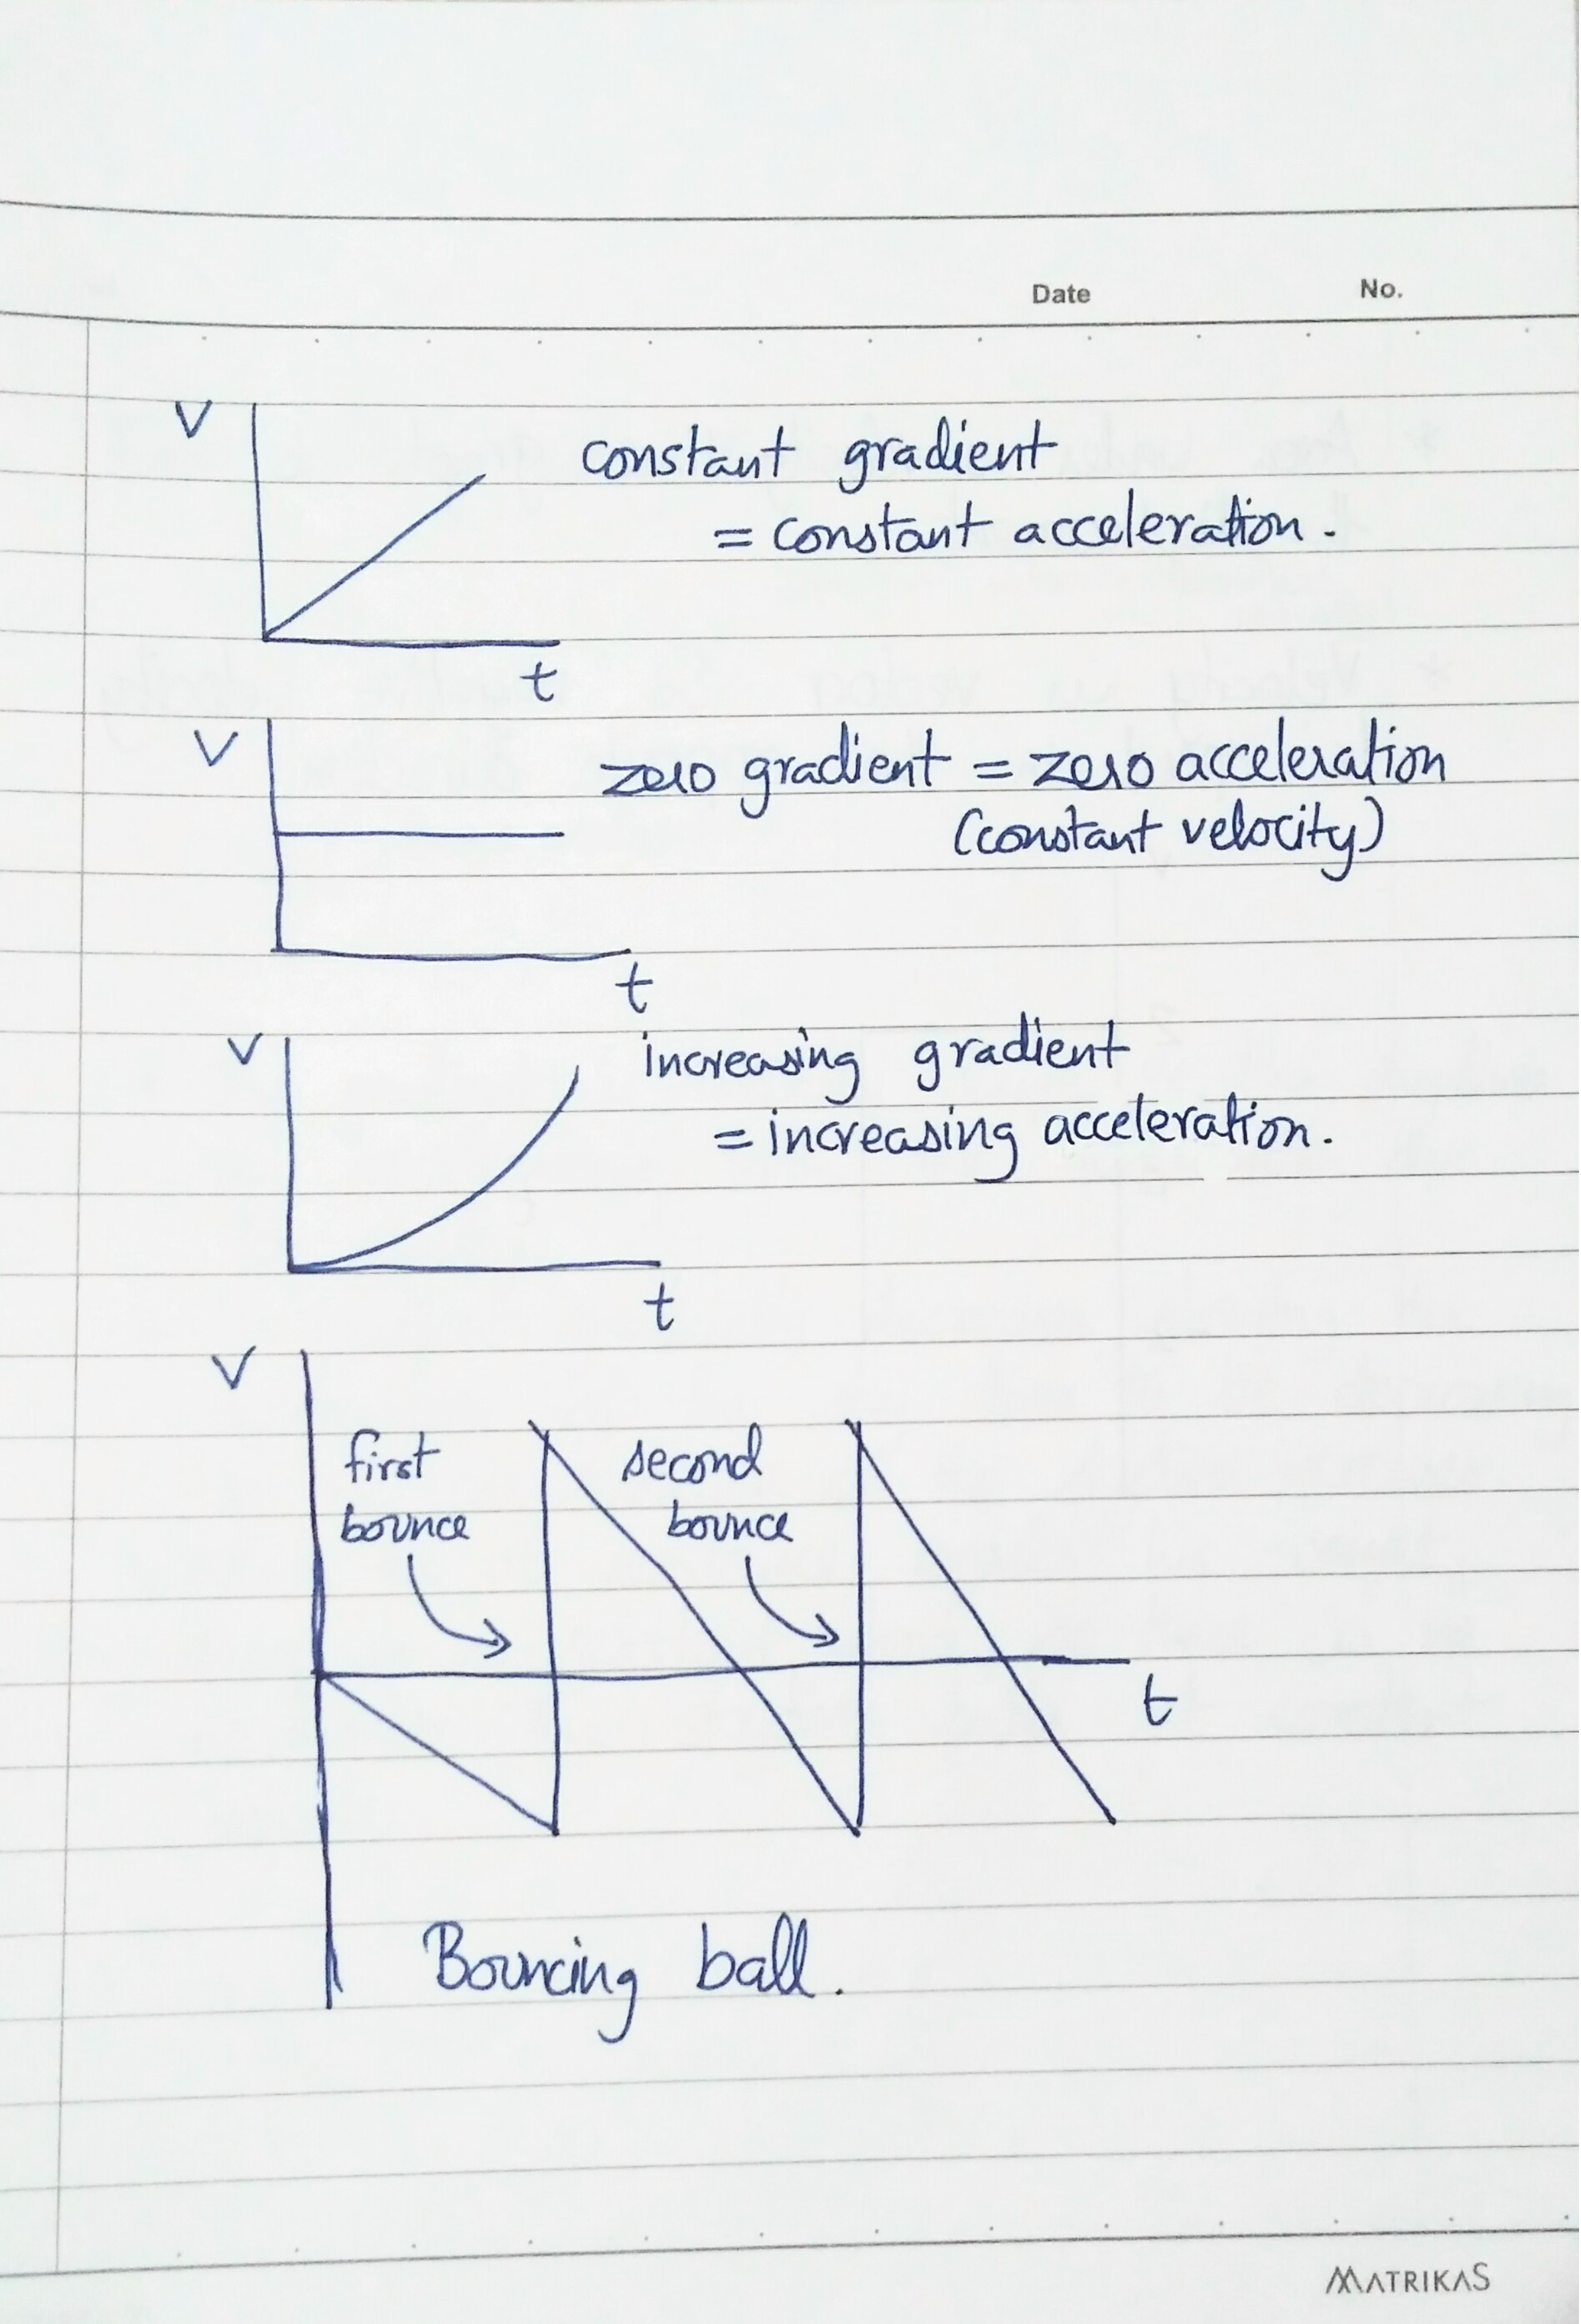 Date No.
V
constant gradient
= constant acceleration.
t
V
zero gradient = zero acceleration
(constant velocity)
t
V
increasing gradient
= increasing acceleration.
t
V
first
bounce
second
bounce
t
Bouncing ball.
MATRIKAS